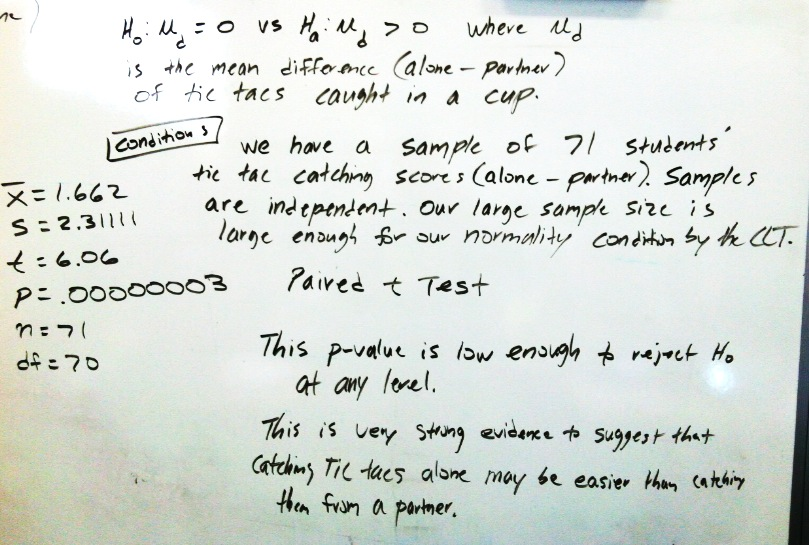 H₀: μ_d = 0 vs Hₐ: μ_d > 0 where μ_d
is the mean difference (alone – partner)
of tic tacs caught in a cup.
Conditions
we have a sample of 71 students'
tic tac catching scores (alone – partner). Samples
are independent. Our large sample size is
large enough for our normality condition by the CLT.
x̄ = 1.662
s = 2.31111
t = 6.06
p = .00000003
n = 71
df = 70
Paired t Test
This p-value is low enough to reject H₀
at any level.
This is very strong evidence to suggest that
Catching Tic tacs alone may be easier than catching
them from a partner.